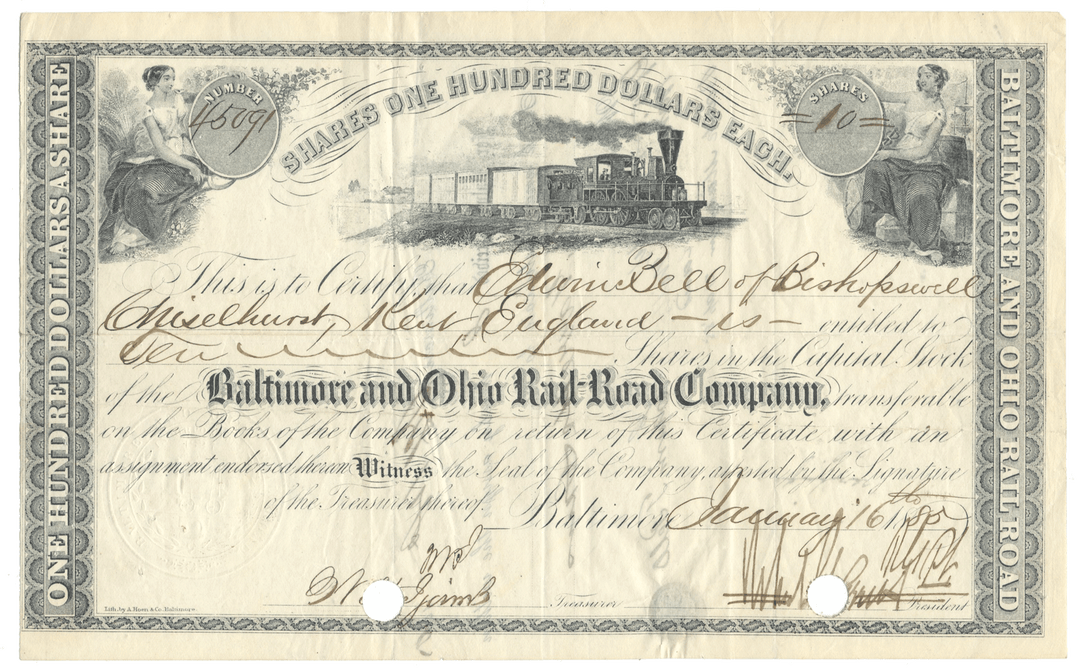 ONE HUNDRED DOLLARS A SHARE
NUMBER
45091
SHARES ONE HUNDRED DOLLARS EACH.
SHARES
=10=
BALTIMORE AND OHIO RAIL ROAD
This is to Certify, that Edwin Bell of Bishopswell
Chiselhurst, Kent England - is - entitled to
Ten Shares in the Capital Stock
of the Baltimore and Ohio Rail-Road Company, transferable
on the Books of the Company on return of this Certificate with an
assignment endorsed thereon Witness the Seal of the Company, attested by the Signature
of the Treasurer thereof.
Baltimore January 16th 1885
Treasurer
President
Lith. by A. Hoen & Co. Baltimore